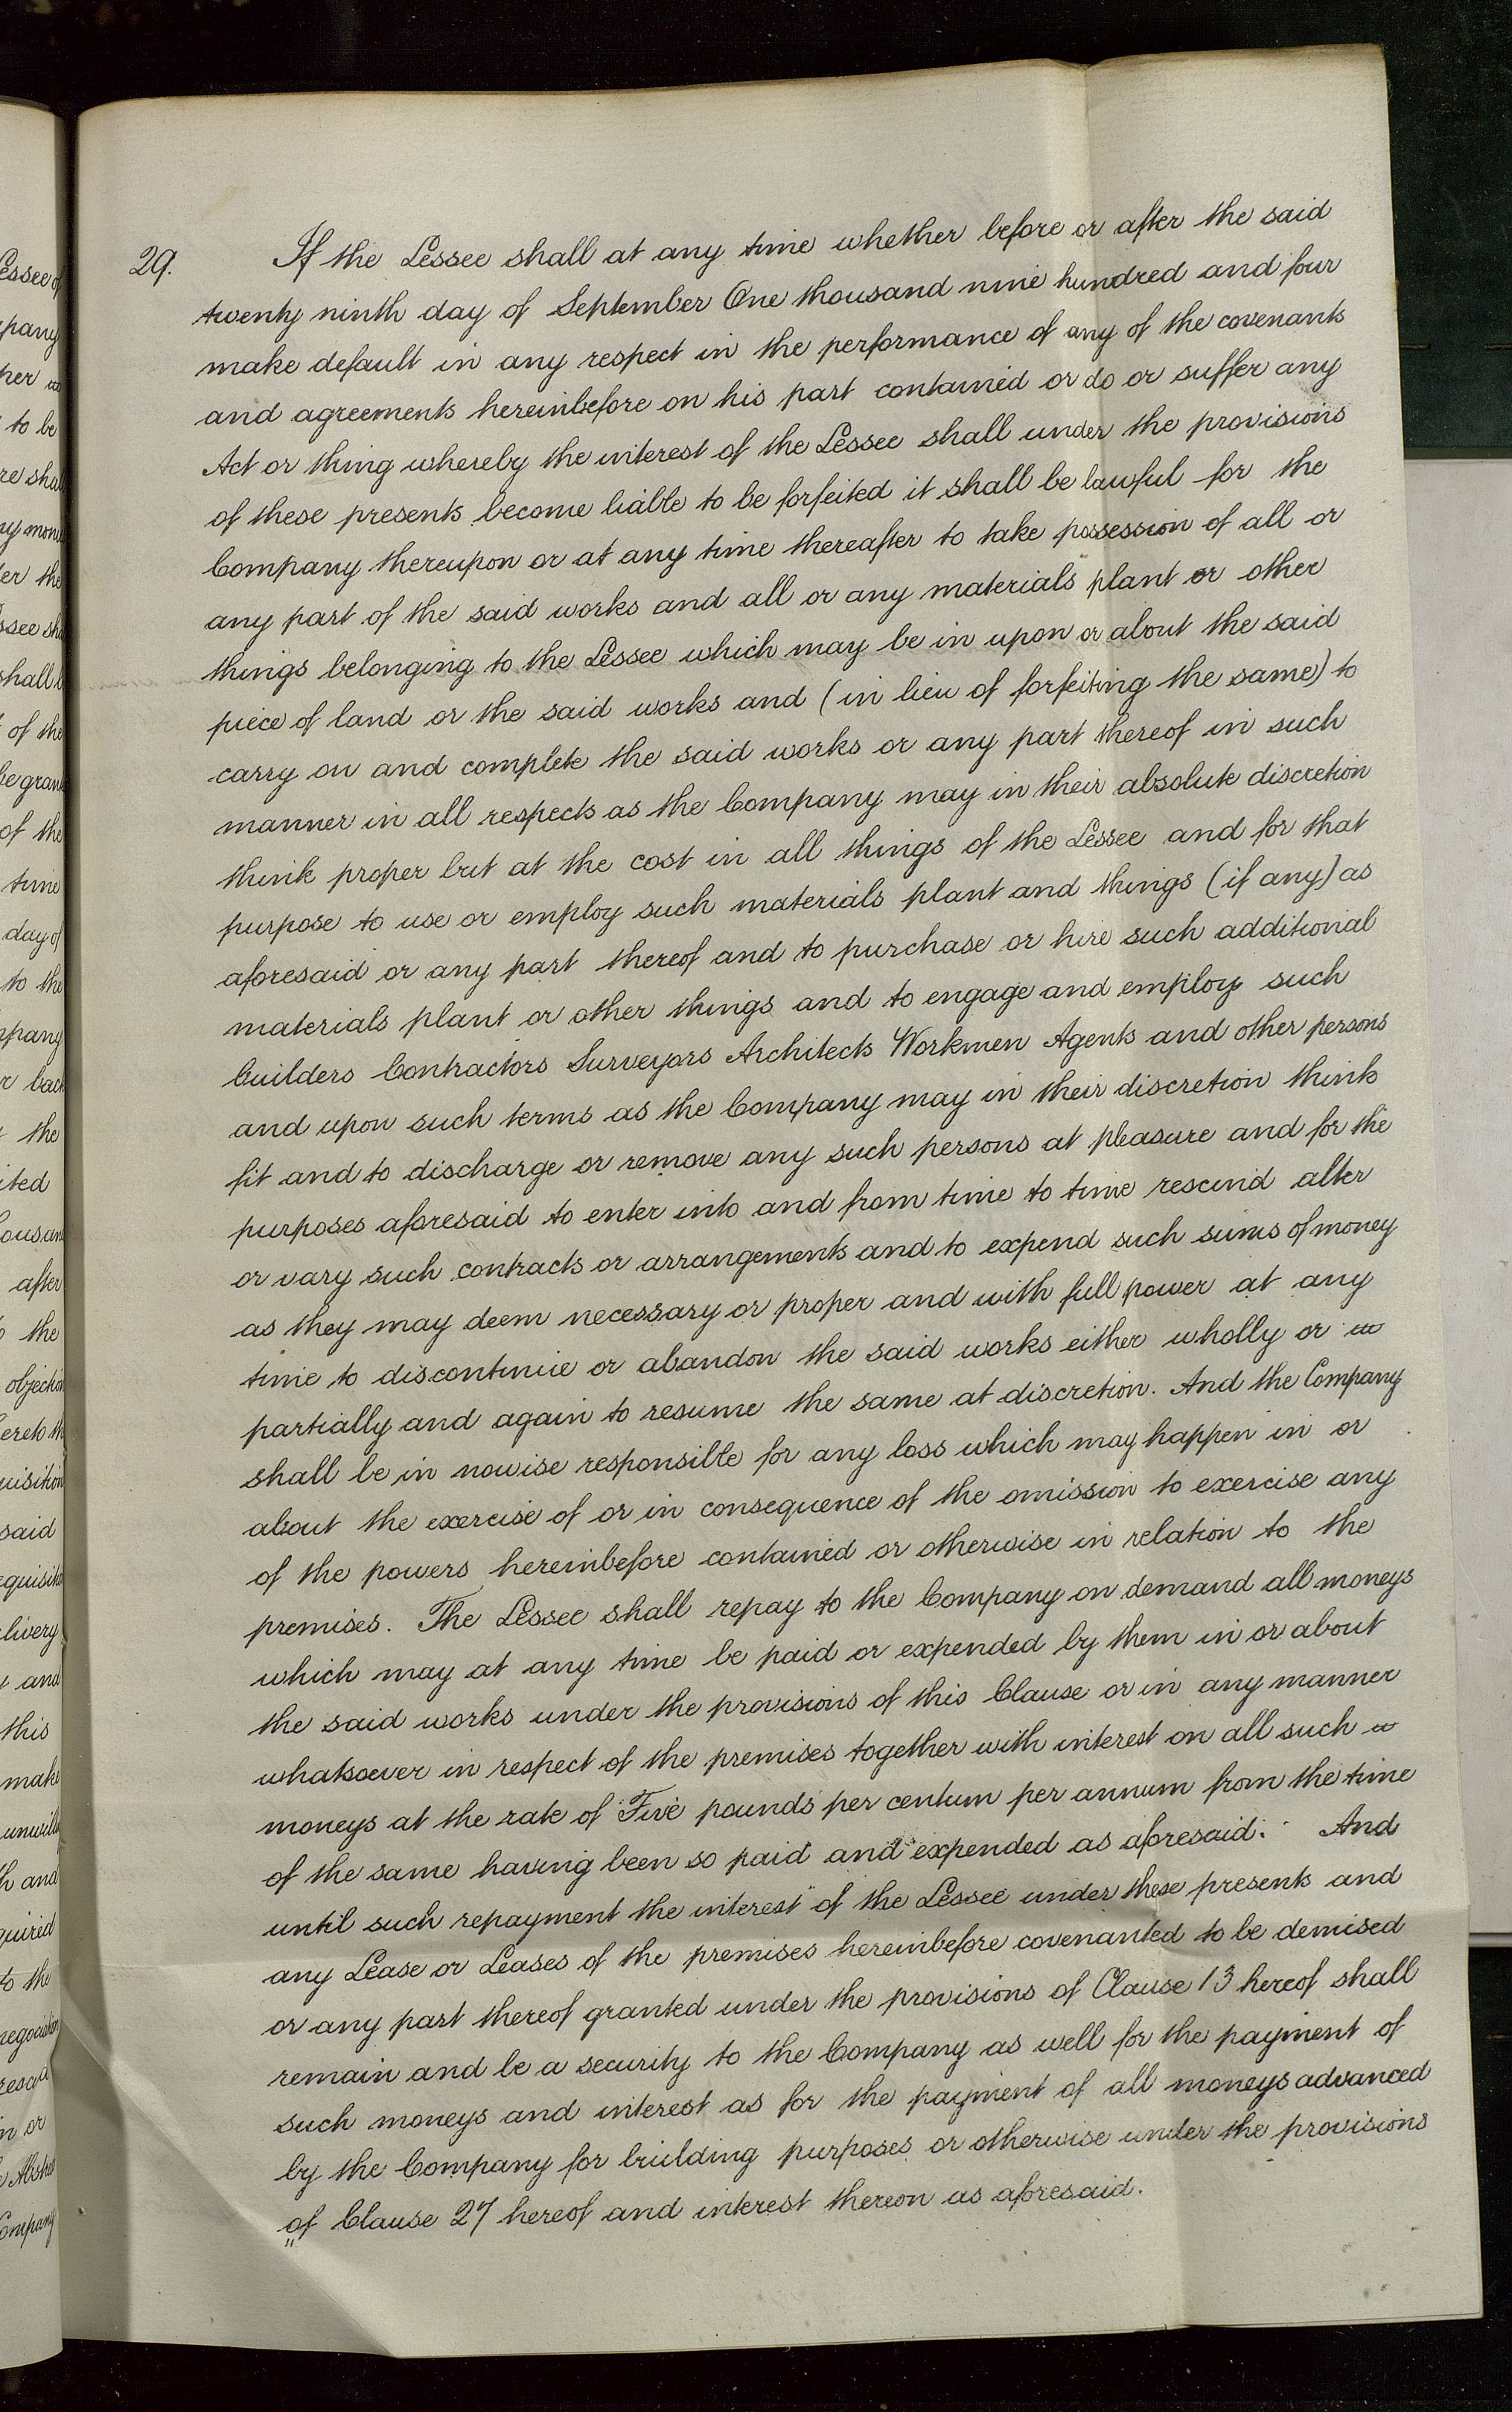 29. If the Lessee shall at any time whether before or after the said
twenty ninth day of September One thousand nine hundred and four
make default in any respect in the performance of any of the covenants
and agreements hereinbefore on his part contained or do or suffer any
Act or thing whereby the interest of the Lessee shall under the provisions
of these presents become liable to be forfeited it shall be lawful for the
Company thereupon or at any time thereafter to take possession of all or
any part of the said works and all or any materials plant or other
things belonging to the Lessee which may be in upon or about the said
piece of land or the said works and (in lieu of forfeiting the same) to
carry on and complete the said works or any part thereof in such
manner in all respects as the Company may in their absolute discretion
think proper but at the cost in all things of the Lessee and for that
purpose to use or employ such materials plant and things (if any) as
aforesaid or any part thereof and to purchase or hire such additional
materials plant or other things and to engage and employ such
builders Contractors Surveyors Architects Workmen Agents and other persons
and upon such terms as the Company may in their discretion think
fit and to discharge or remove any such persons at pleasure and for the
purposes aforesaid to enter into and from time to time rescind alter
or vary such contracts or arrangements and to expend such sums of money
as they may deem necessary or proper and with full power at any
time to discontinue or abandon the said works either wholly or
partially and again to resume the same at discretion. And the Company
shall be in nowise responsible for any loss which may happen in or
about the exercise of or in consequence of the omission to exercise any
of the powers hereinbefore contained or otherwise in relation to the
premises. The Lessee shall repay to the Company on demand all moneys
which may at any time be paid or expended by them in or about
the said works under the provisions of this Clause or in any manner
whatsoever in respect of the premises together with interest on all such
moneys at the rate of Five pounds per centum per annum from the time
of the same having been so paid and expended as aforesaid. And
until such repayment the interest of the Lessee under these presents and
any Lease or Leases of the premises hereinbefore covenanted to be demised
or any part thereof granted under the provisions of Clause 13 hereof shall
remain and be a security to the Company as well for the payment of
such moneys and interest as for the payment of all moneys advanced
by the Company for building purposes or otherwise under the provisions
of Clause 27 hereof and interest thereon as aforesaid.